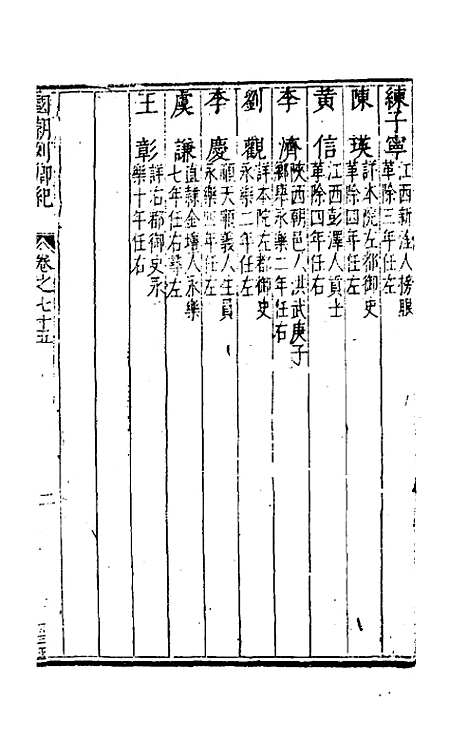 練子寧 江西新淦人榜眼
革除三年任左
陳瑛 詳本院左都御史
革除四年任左
黃信 江西彭澤人貢士
革除四年任右
李濟 陝西朝邑人洪武庚子
鄉舉永樂二年任右
劉觀 詳本院左都御史
永樂二年任左
李慶 順天順義人生員
永樂四年任左
虞謙 直隸金壇人永樂
七年任右尋左
王彰 詳右都御史永
樂十年任右
國朝列卿紀 卷之七十五 二